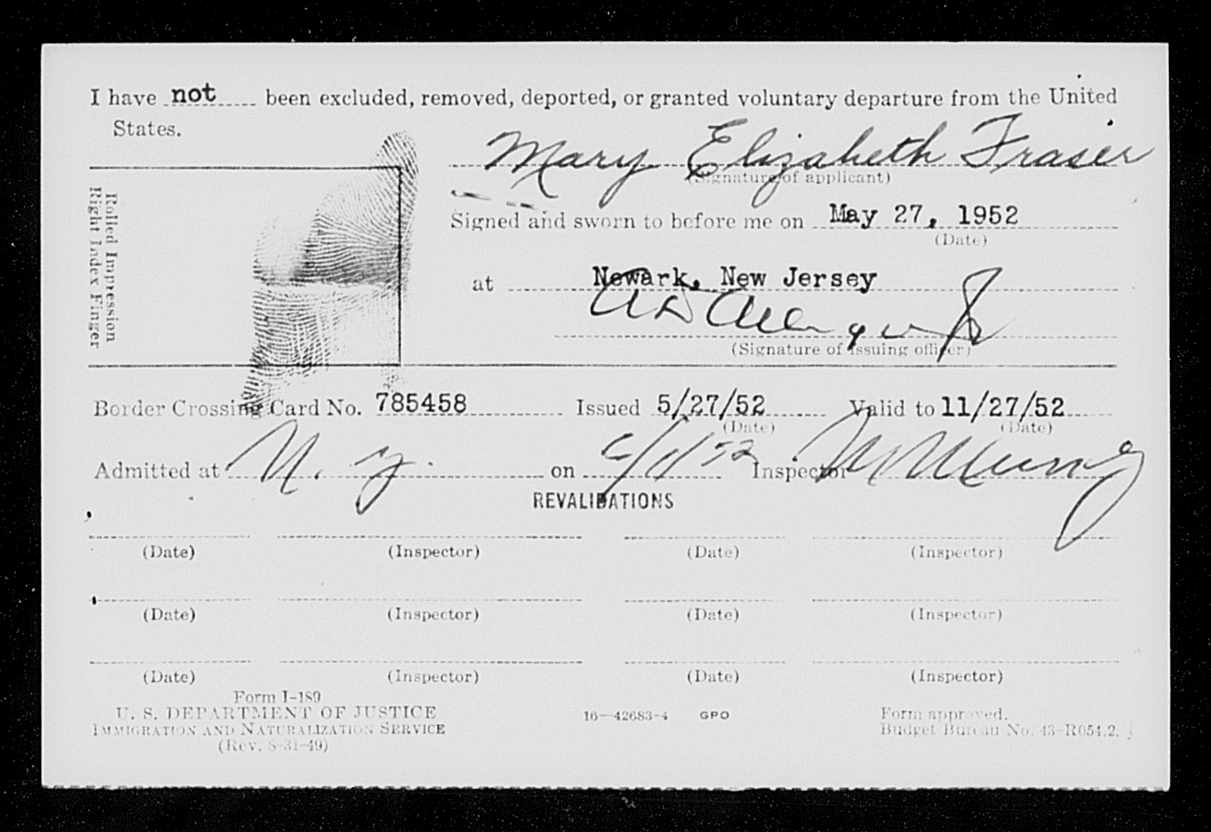 I have not been excluded, removed, deported, or granted voluntary departure from the United
States.
Mary Elizabeth Fraser
(Signature of applicant)
Rolled Impression
Right Index Finger
Signed and sworn to before me on May 27, 1952
(Date)
at Newark, New Jersey
(Signature of issuing officer)
Border Crossing Card No. 785458 Issued 5/27/52 Valid to 11/27/52
(Date) (Date)
Admitted at N. Y. on 6/1/52 Inspector
REVALIDATIONS
(Date) (Inspector) (Date) (Inspector)
(Date) (Inspector) (Date) (Inspector)
(Date) (Inspector) (Date) (Inspector)
Form I-189
U. S. DEPARTMENT OF JUSTICE 16—42683-4 GPO Form approved.
IMMIGRATION AND NATURALIZATION SERVICE Budget Bureau No. 43-R054.2.
(Rev. 8-31-49)